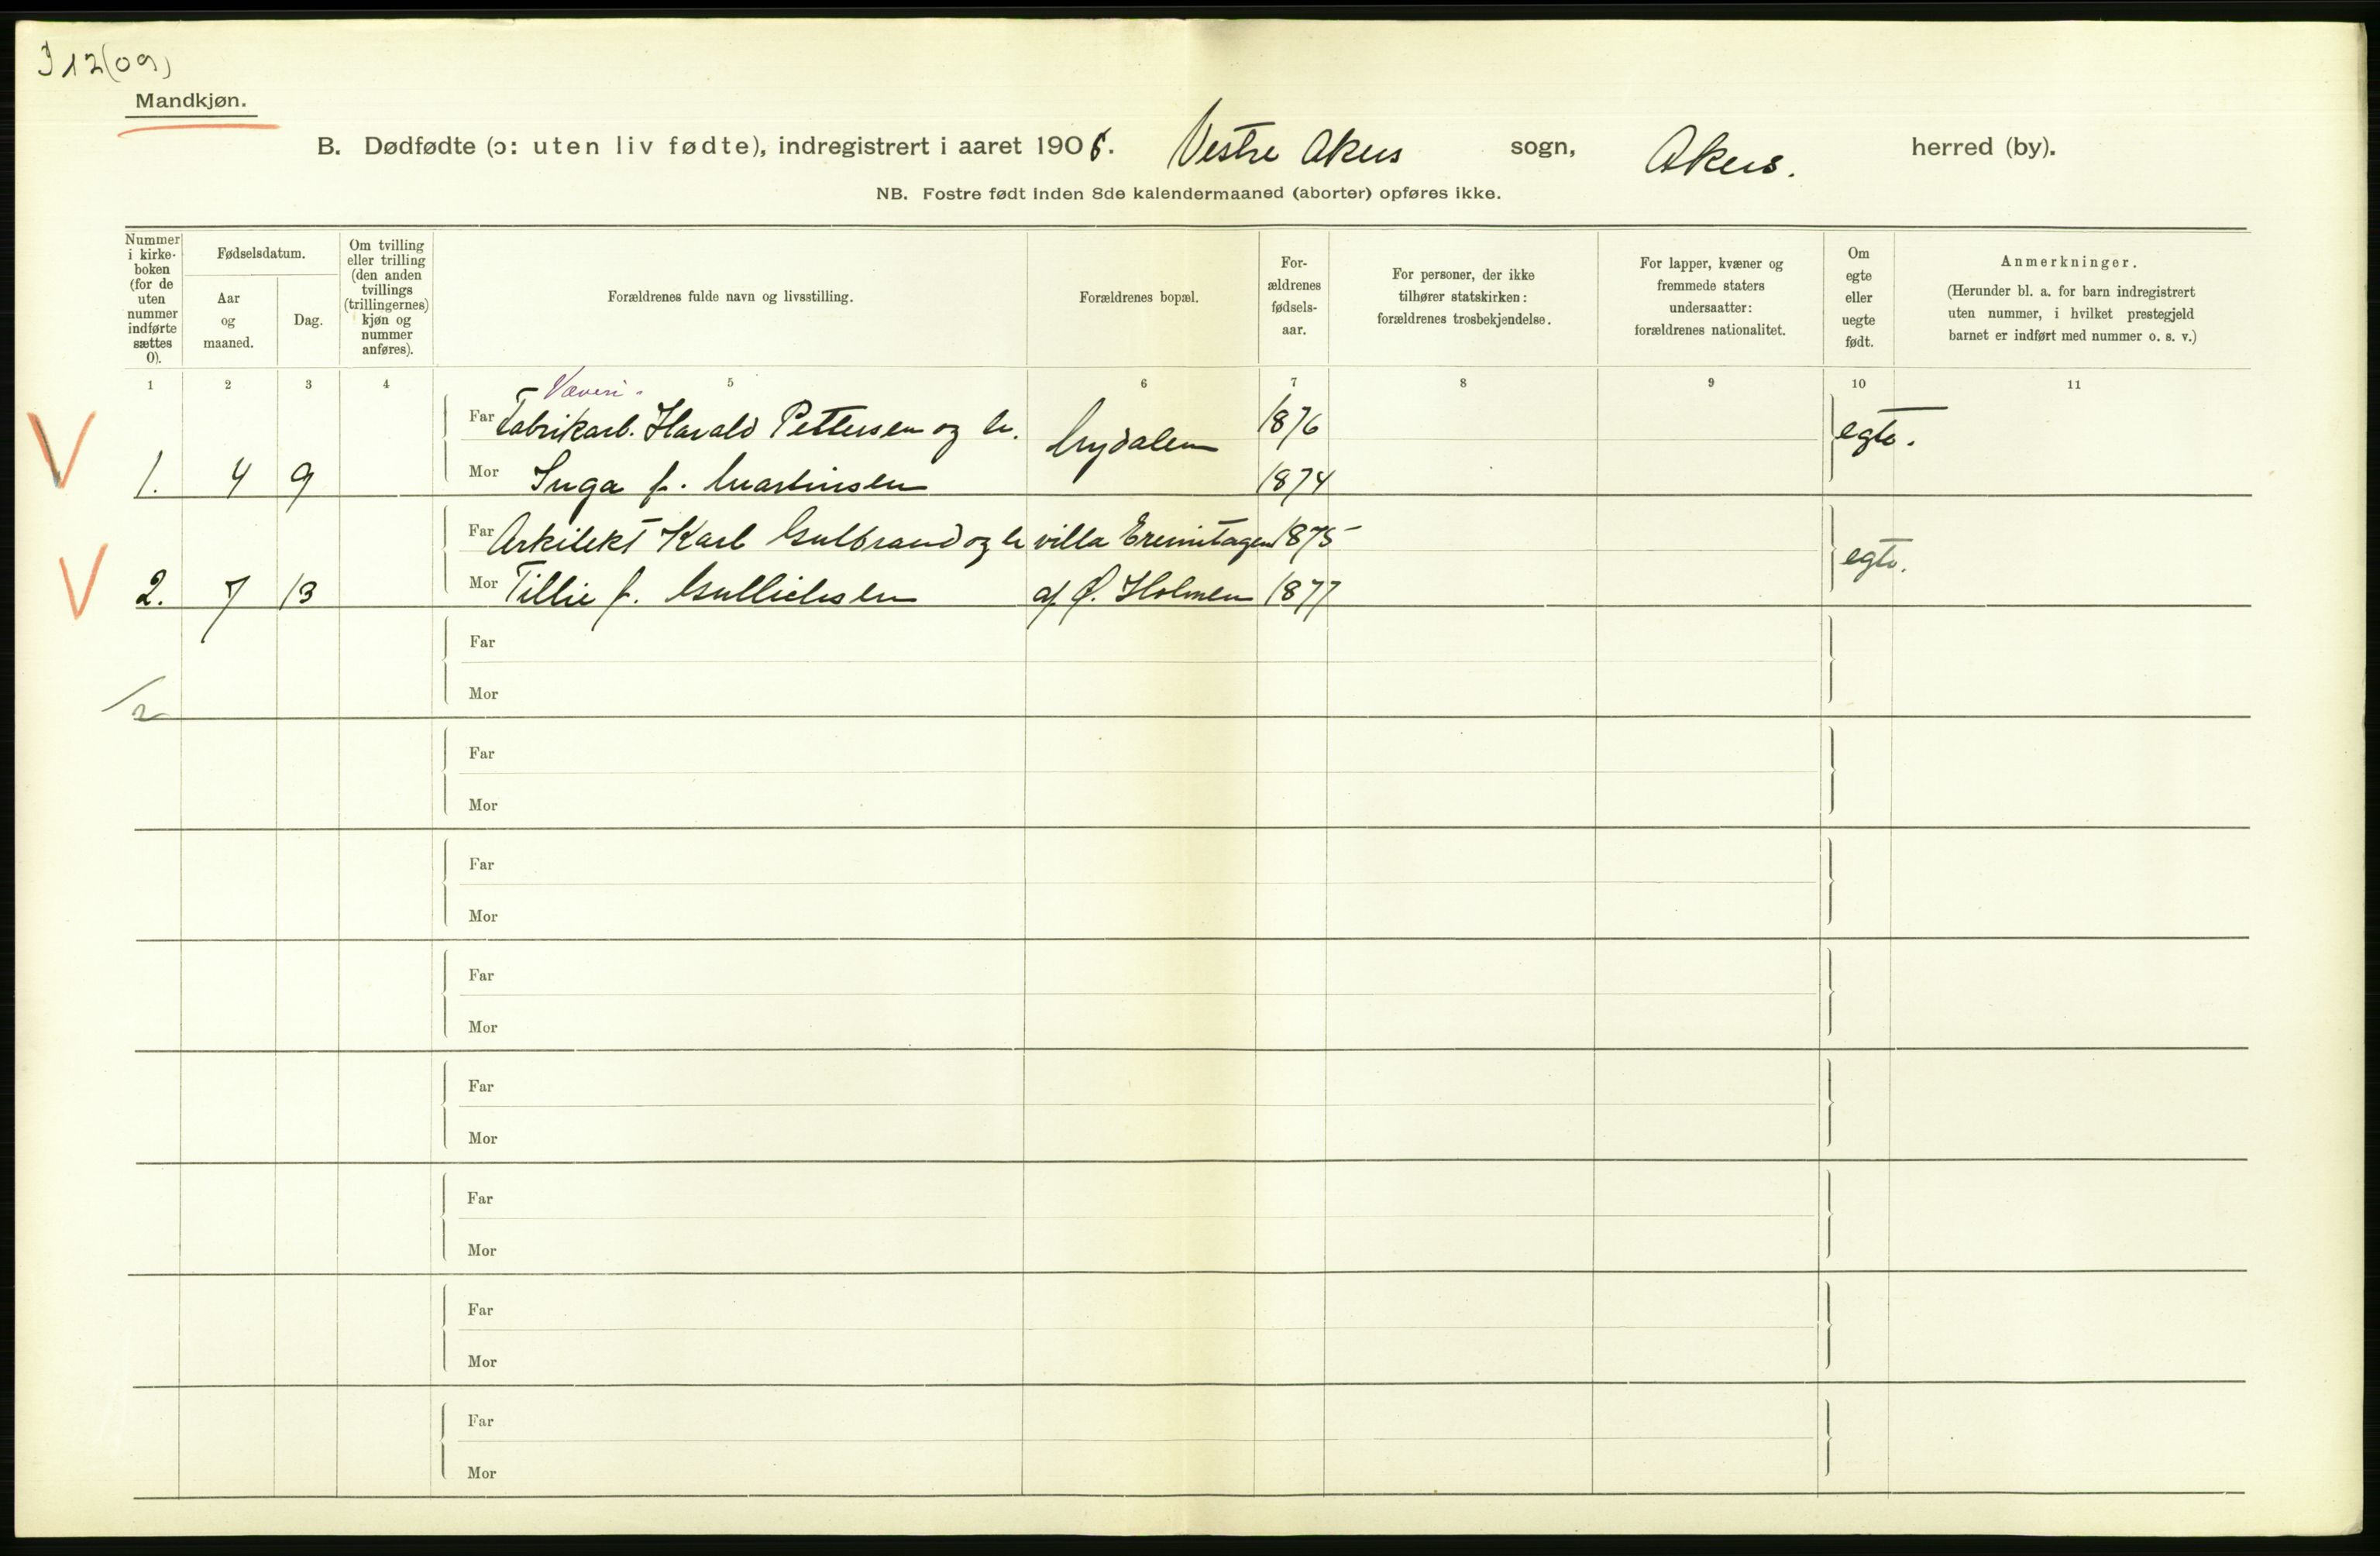 J 12(09)
Mandkjøn.
B. Dødfødte (ɔ: uten liv fødte), indregistrert i aaret 1906. Vestre Akers sogn, Akers. herred (by).
NB. Fostre født inden 8de kalendermaaned (aborter) opføres ikke.
Nummer i kirke-boken (for de uten nummer indførte sættes 0).
Fødselsdatum.
Aar og maaned.
Dag.
Om tvilling eller trilling (den anden tvillings (trillingernes) kjøn og nummer anføres).
Forældrenes fulde navn og livsstilling.
Forældrenes bopæl.
For-ældrenes fødsels-aar.
For personer, der ikke tilhører statskirken: forældrenes trosbekjendelse.
For lapper, kvæner og fremmede staters undersaatter: forældrenes nationalitet.
Om egte eller uegte født.
Anmerkninger.
(Herunder bl. a. for barn indregistrert uten nummer, i hvilket prestegjeld barnet er indført med nummer o. s. v.)
1 2 3 4 5 6 7 8 9 10 11
Væveri-
Far Fabrikarb. Harald Pettersen og h. Nydalen 1876 egte.
1. 4 9 Mor Inga f. Martinsen 1874
Far Arkitekt Karl Gulbrand og h villa Eremitagen 1875 egte.
2. 7 13 Mor Tillie f. Gullichsen af Ø. Holmen 1877
Far
Mor
2
Far
Mor
Far
Mor
Far
Mor
Far
Mor
Far
Mor
Far
Mor
Far
Mor